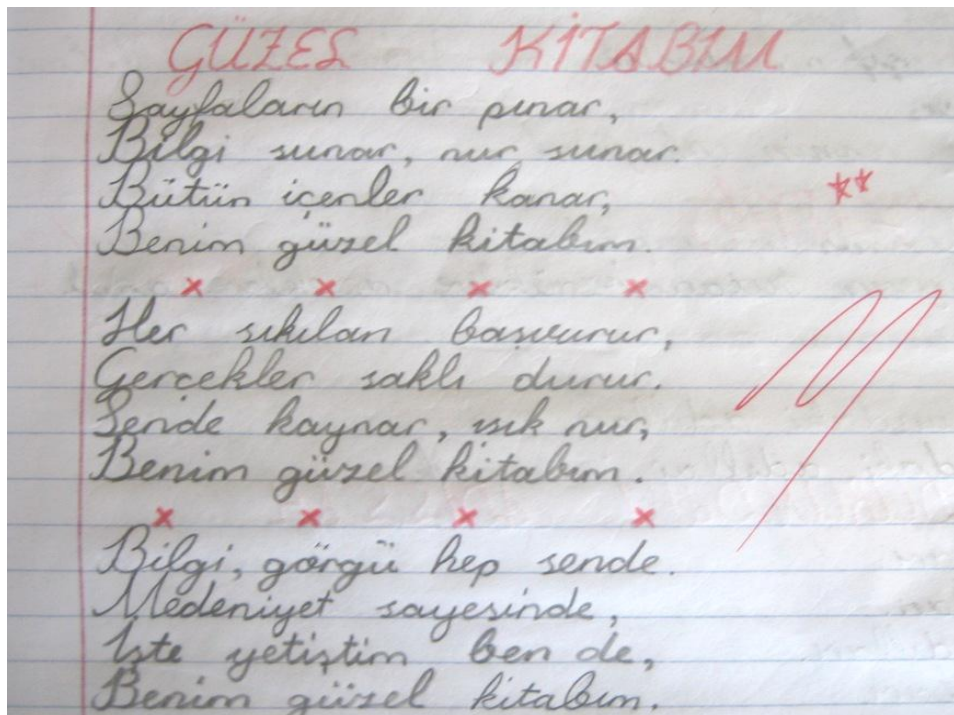 GÜZEL KİTABIM
Sayfaların bir pınar,
Bilgi sunar, nur sunar.
Bütün içenler kanar,
Benim güzel kitabım.
Her sıkılan başvurur,
Gerçekler saklı durur.
Sende kaynar, ışık nur,
Benim güzel kitabım.
Bilgi, görgü hep sende.
Medeniyet sayesinde,
İşte yetiştim ben de,
Benim güzel kitabım.